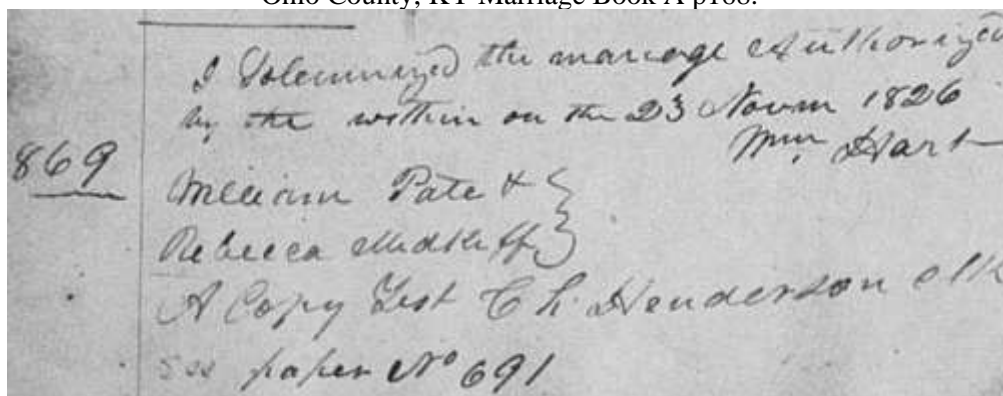 Ohio County, KY Marriage Book A p168.
I Solemnized the marriage Authorized
by the within on the 23 Novm 1826
Wm Hart
869
William Pate &
Rebecca Medkeff
A Copy Test C h. Henderson clk
paper No 691